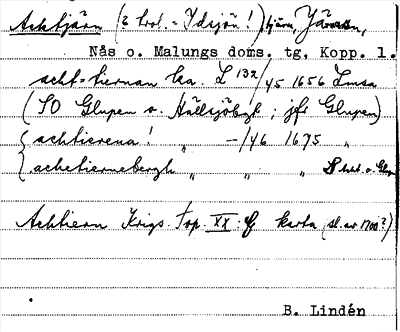 Acktjärn (? trol. = Idsjön!) tjärn, Järna,
Nås o. Malungs doms. tg, Kopp. l.
acht-tiernan Laa. L 132/45 1656 Lmsa
(SO Glupen o. Hällsjöbgt ; jfr Glupen)
achtierena! " -/46 1675 "
achetiernebergh " " "
Achtiern Krigs. Top. XX: karta (sl. av 1700?)
B. Lindén